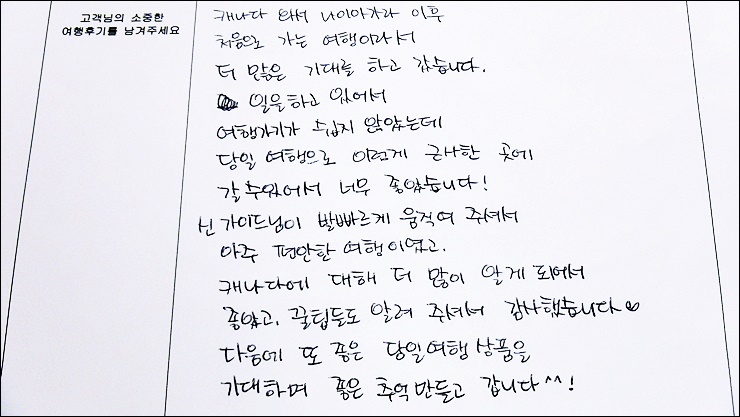 고객님의 소중한
여행후기를 남겨주세요
캐나다 와서 나이아가라 이후
처음으로 가는 여행이라서
더 많은 기대를 하고 갔습니다.
일을하고 있어서
여행가기가 쉽지 않았는데
당일 여행으로 이렇게 근사한 곳에
갈수있어서 너무 좋았습니다!
신 가이드님이 발빠르게 움직여 주셔서
아주 편안한 여행이였고.
캐나다에 대해 더 많이 알게 되어서
좋았고, 꿀팁들도 알려 주셔서 감사했습니다♡
다음에 또 좋은 당일여행 상품을
기대하며 좋은 추억만들고 갑니다^^!